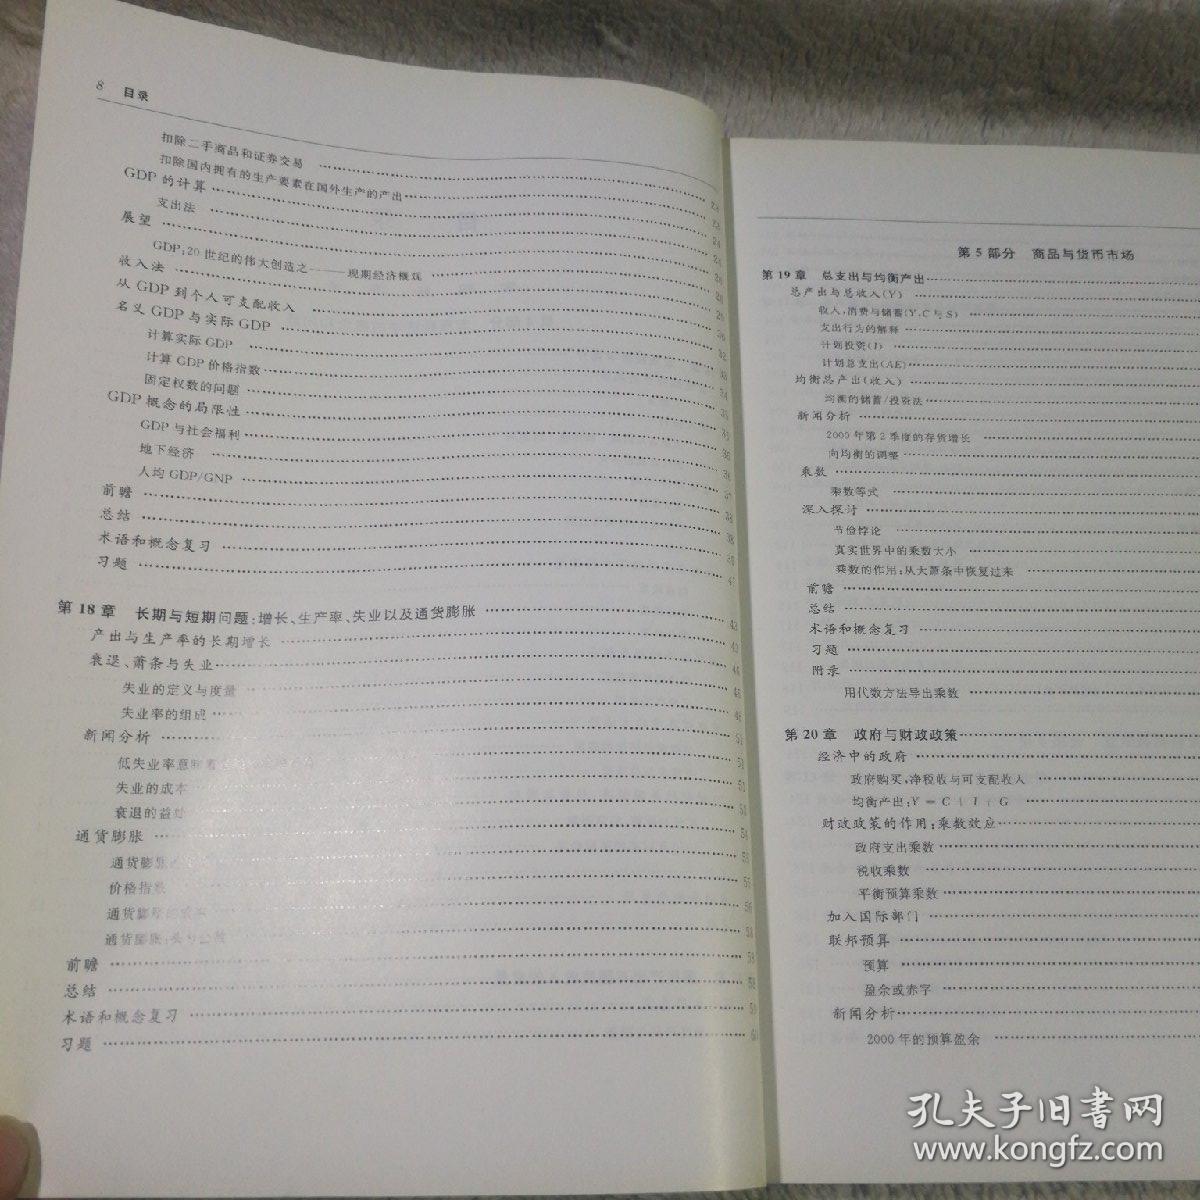 8 目录
扣除二手商品和证券交易
扣除国内拥有的生产要素在国外生产的产出
GDP的计算
支出法
展望
GDP:20世纪的伟大创造之一——现期经济概览
收入法
从GDP到个人可支配收入
名义GDP与实际GDP
计算实际GDP
计算GDP价格指数
固定权数的问题
GDP概念的局限性
GDP与社会福利
地下经济
人均GDP/GNP
前瞻
总结
术语和概念复习
习题
第18章 长期与短期问题:增长、生产率、失业以及通货膨胀 42
产出与生产率的长期增长 43
衰退、萧条与失业 44
失业的定义与度量 45
失业率的组成
新闻分析 51
低失业率意味着
失业的成本
衰退的益处 53
通货膨胀 54
通货膨胀 55
价格指数 55
通货膨胀的成本 56
通货膨胀:头号公敌 58
前瞻 58
总结 58
术语和概念复习 59
习题 60
第5部分 商品与货币市场
第19章 总支出与均衡产出
总产出与总收入(Y)
收入,消费与储蓄(Y,C与S)
支出行为的解释
计划投资(I)
计划总支出(AE)
均衡总产出(收入)
均衡的储蓄/投资法
新闻分析
2000年第2季度的存货增长
向均衡的调整
乘数
乘数等式
深入探讨
节俭悖论
真实世界中的乘数大小
乘数的作用:从大萧条中恢复过来
前瞻
总结
术语和概念复习
习题
附录
用代数方法导出乘数
第20章 政府与财政政策
经济中的政府
政府购买,净税收与可支配收入
均衡产出:Y=C+I+G
财政政策的作用:乘数效应
政府支出乘数
税收乘数
平衡预算乘数
加入国际部门
联邦预算
预算
盈余或赤字
新闻分析
2000年的预算盈余
孔夫子旧书网
www.kongfz.com